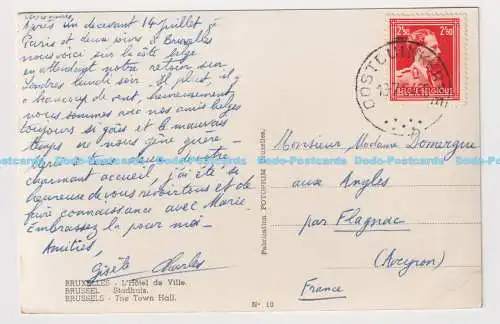 Après un décevant 14 Juillet à
Paris et deux jours à Bruxelles
nous voici sur la côte belge
en attendant notre retour sur
Londres lundi soir. Il pleut, il y
a beaucoup de vent, heureusement
nous sommes avec nos amis belges
toujours si gais et le mauvais
temps ne nous gêne guère.
Merci à tous deux de votre
charmant accueil, j'ai été si
heureuse de vous revoir tous et de
faire connaissance avec Marie
Embrassez la pour moi.
Amitiés,
Gisèle Charles
BRUXELLES - L'Hôtel de Ville.
BRUSSEL Stadhuis.
BRUSSELS - The Town Hall.
Fabrication FOTOPRIM Bruxelles.
N° 10
2F50 2F50
BELGIE-BELGIQUE
OOSTDUINKERKE
Monsieur Madame Domergue
aux Angles
par Flagnac
(Aveyron)
France
Dodo-Postcards Dodo-Postcards Dodo-Postcards Dodo-Postcards